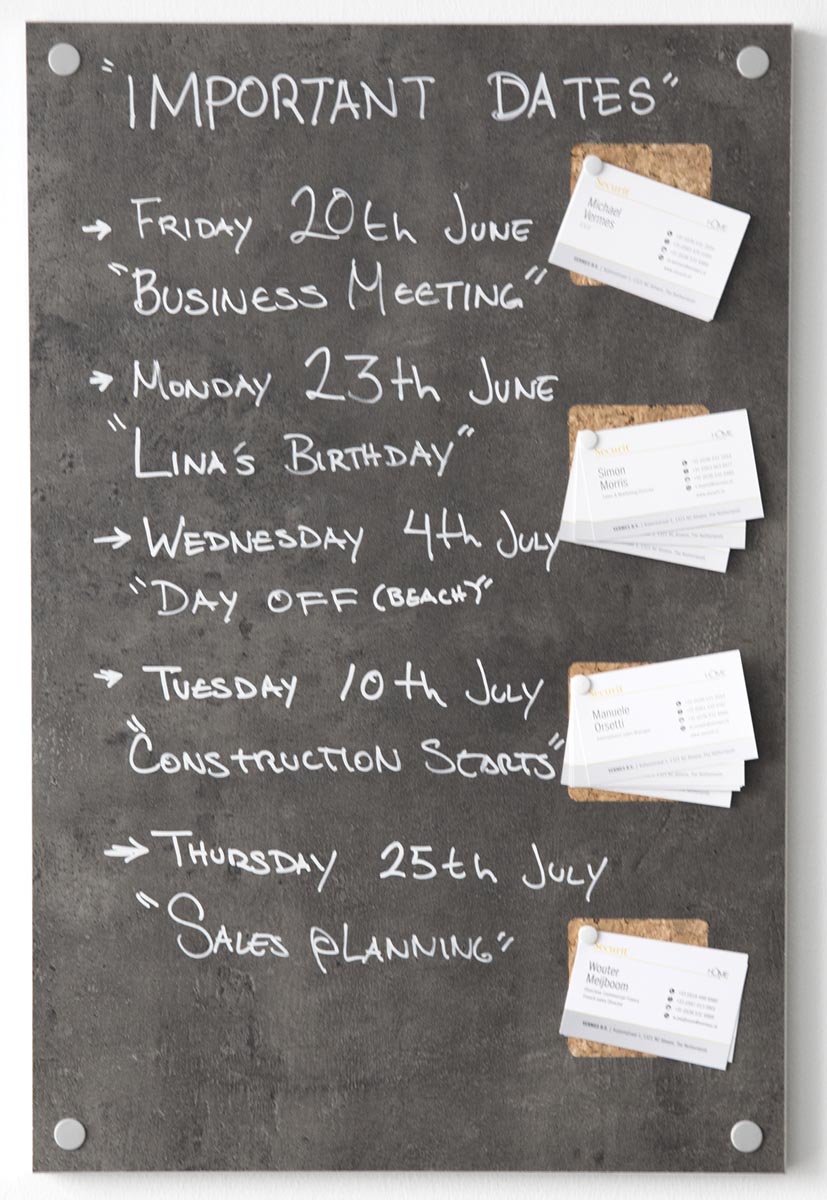 "IMPORTANT DATES"
→ FRIDAY 20th JUNE
"BUSINESS MEETING"
→ MONDAY 23th JUNE
"LINA'S BIRTHDAY"
→ WEDNESDAY 4th JULY
"DAY OFF (BEACH)"
→ TUESDAY 10th JULY
"CONSTRUCTION STARTS"
→ THURSDAY 25th JULY
"SALES PLANNING"
Securit
HOME
Michael
Vermes
Securit
HOME
Simon
Morris
Sales & Marketing Director
Securit
HOME
Manuele
Orsetti
International Sales Manager
Securit
HOME
Wouter
Meijboom